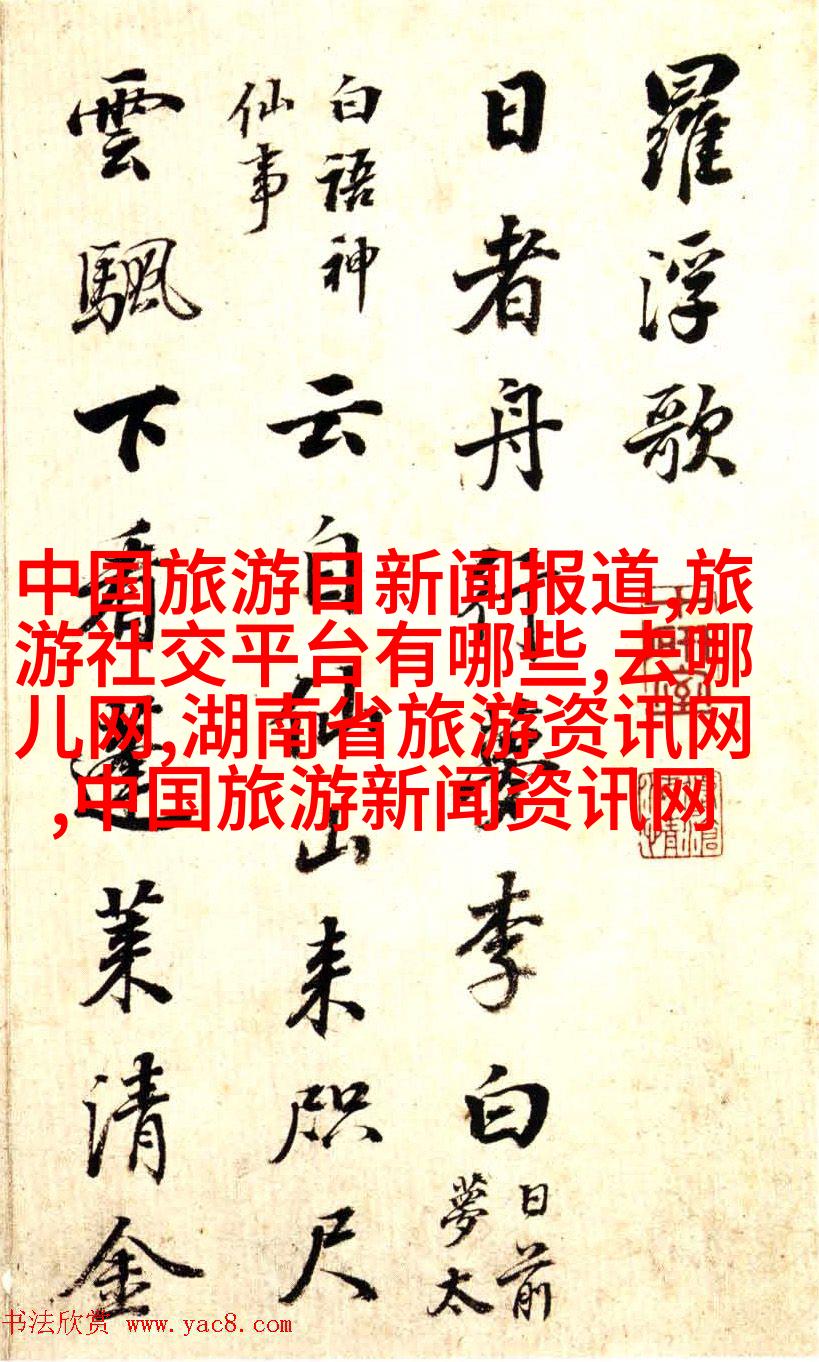 羅浮歌
日者舟行夢李白
日前
夢太
白語神
仙事
云自仙山来咫尺
雲颿下看蓬莱清金
中国旅游日新闻报道,旅
游社交平台有哪些,去哪
儿网,湖南省旅游资讯网
,中国旅游新闻资讯网
书法欣赏 www.yac8.com